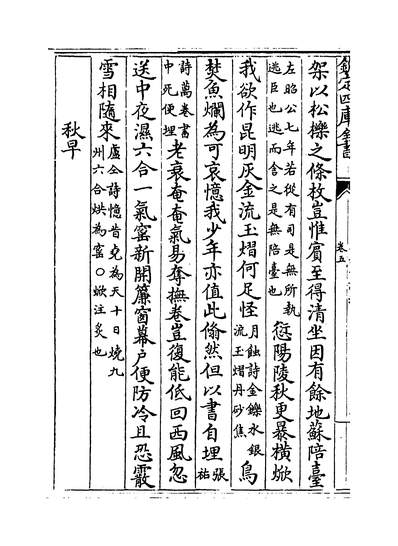 欽定四庫全書
卷五
架以松櫟之條枚豈惟賓至得清坐因有餘地蘇陪臺
左昭公七年若從有司是無所執逃臣也逃而舍之是無陪臺也愆陽陵秋更暴橫焮
我欲作昆明灰金流玉熠何足怪月蝕詩金鑠水銀流玉熠丹砂焦鳥
焚魚爛為可哀憶我少年亦值此翛然但以書自埋張祐
詩萬卷書中死便埋老衰奄奄氣易奪撫卷豈復能低回西風忽
送中夜濕六合一氣窰新開簾窗幕戶便防冷且恐霰
雪相隨來盧仝詩憶昔堯為天十日燒九州六合烘為窰○焮注炙也
秋早